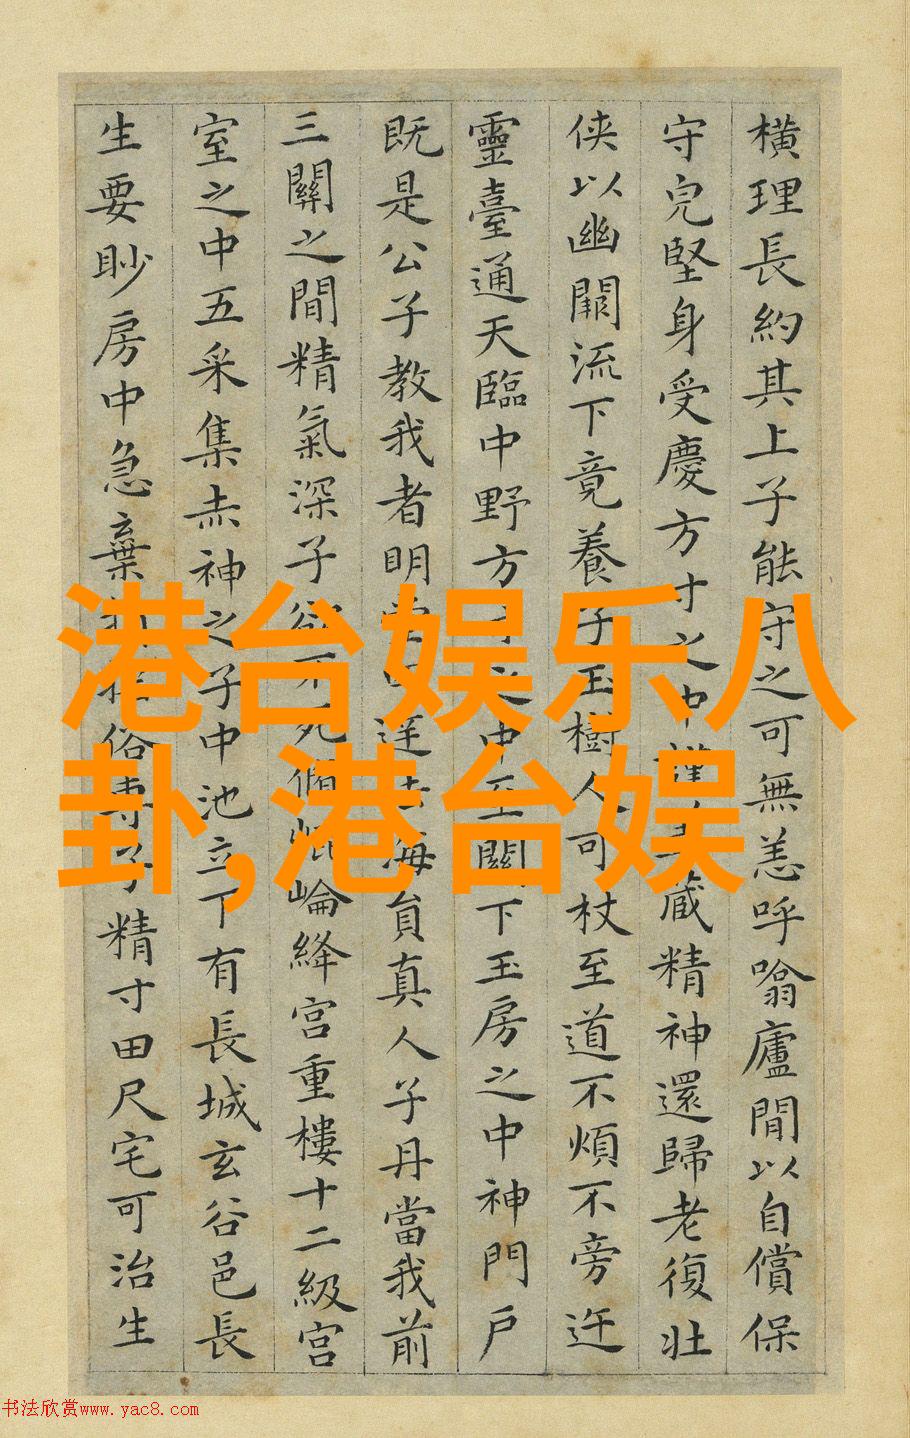 橫理長約其上子能守之可無恙呼噏廬間以自償保
守皃堅身受慶方寸之中藏精神還歸老復壯
侠以幽闕流下竟養子玉樹人可杖至道不煩不旁迕
靈臺通天臨中野方之中至關下玉房之中神門戶
既是公子教我者明海員真人子丹當我前
三關之間精氣深子欲不死脩崐崘絳宮重樓十二級宮
室之中五采集赤神之子中池立下有長城玄谷邑長
生要眇房中急棄俗專子精寸田尺宅可治生
港台娱乐八
卦,港台娱
书法欣赏www.yac8.com